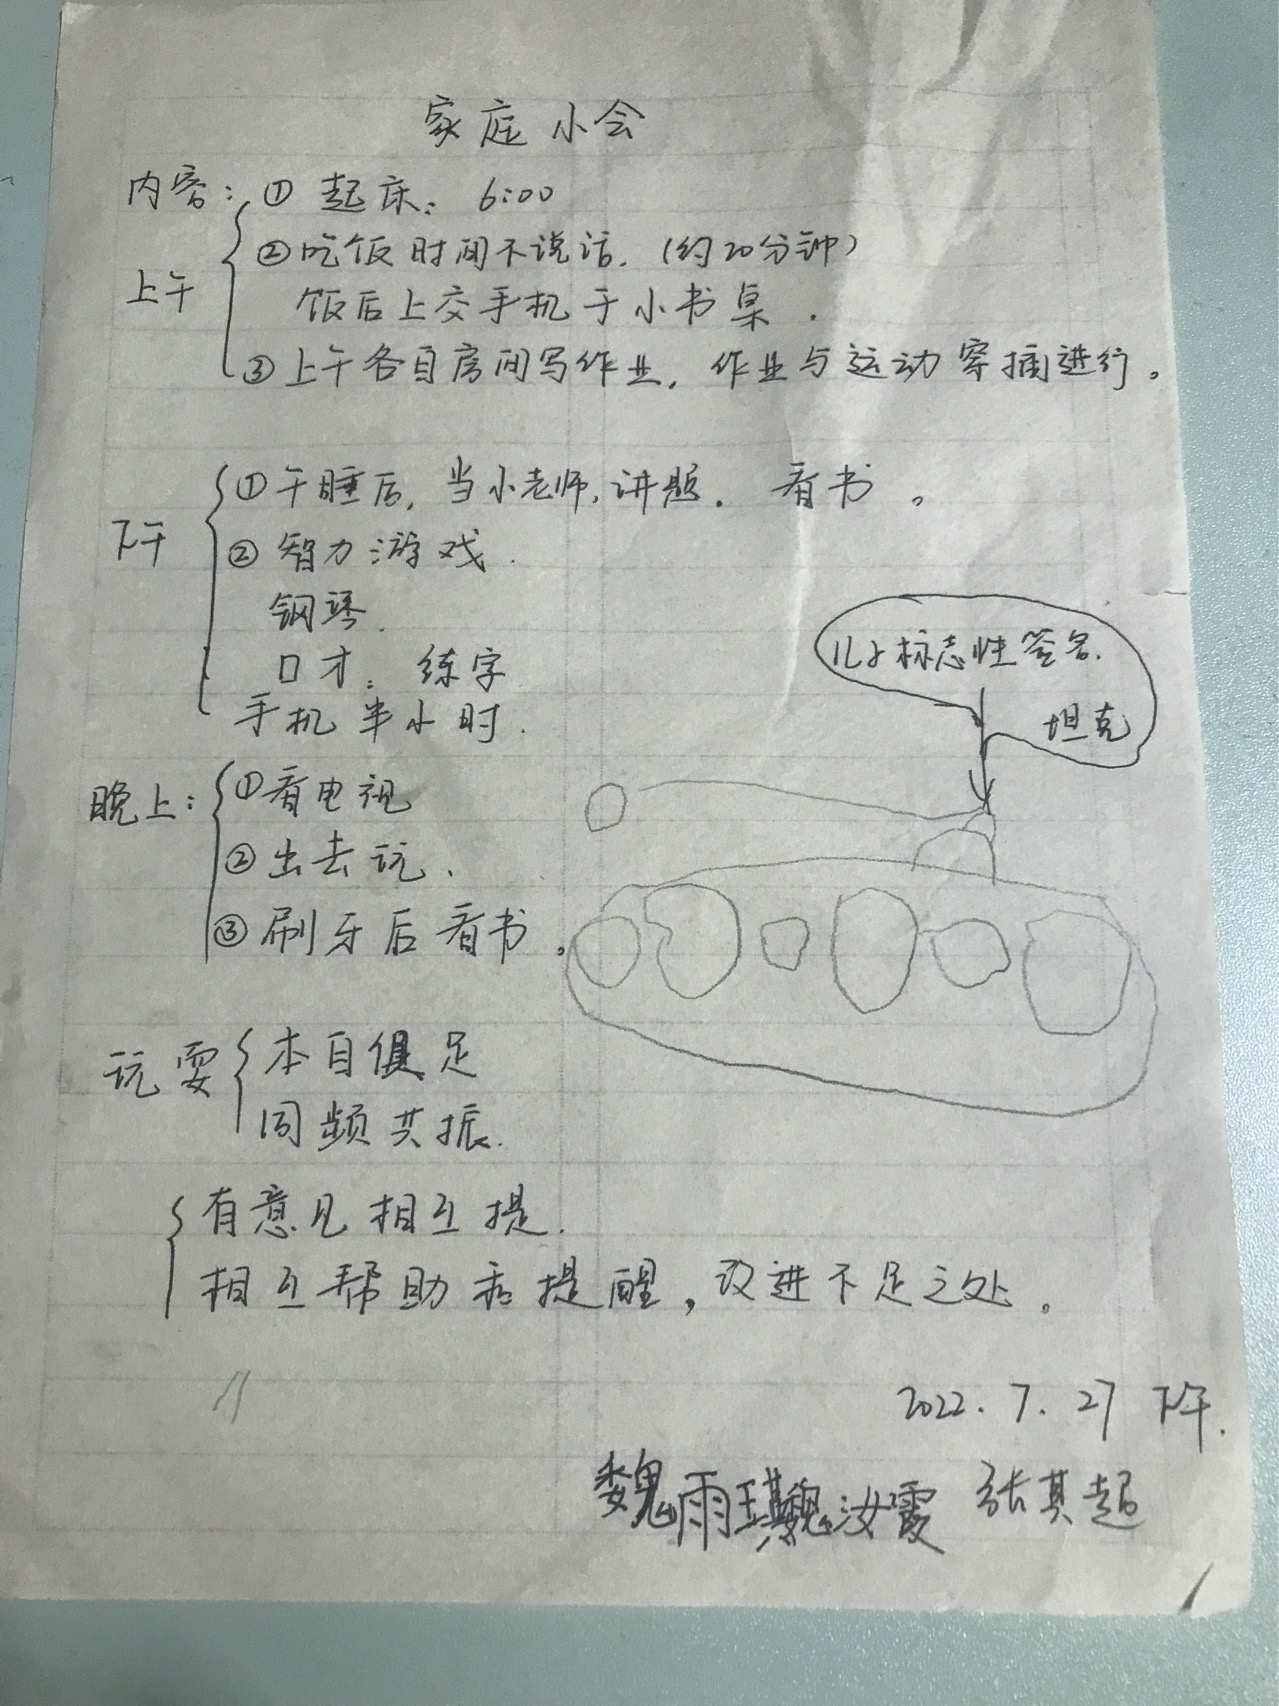 家庭小会
内容：① 起床：6:00
②吃饭时间不说话.（约20分钟）
上午
饭后上交手机于小书桌.
③上午各自房间写作业，作业与运动穿插进行。
①午睡后，当小老师，讲题. 看书。
下午
②智力游戏.
钢琴.
口才；练字
手机半小时.
儿子标志性签名.
坦克
晚上：①看电视
②出去玩、
③刷牙后看书。
玩耍
本自俱足
同频共振.
有意见相互提.
相互帮助和提醒，改进不足之处。
2022.7.27 下午.
魏雨琪 魏汝霞 张其超